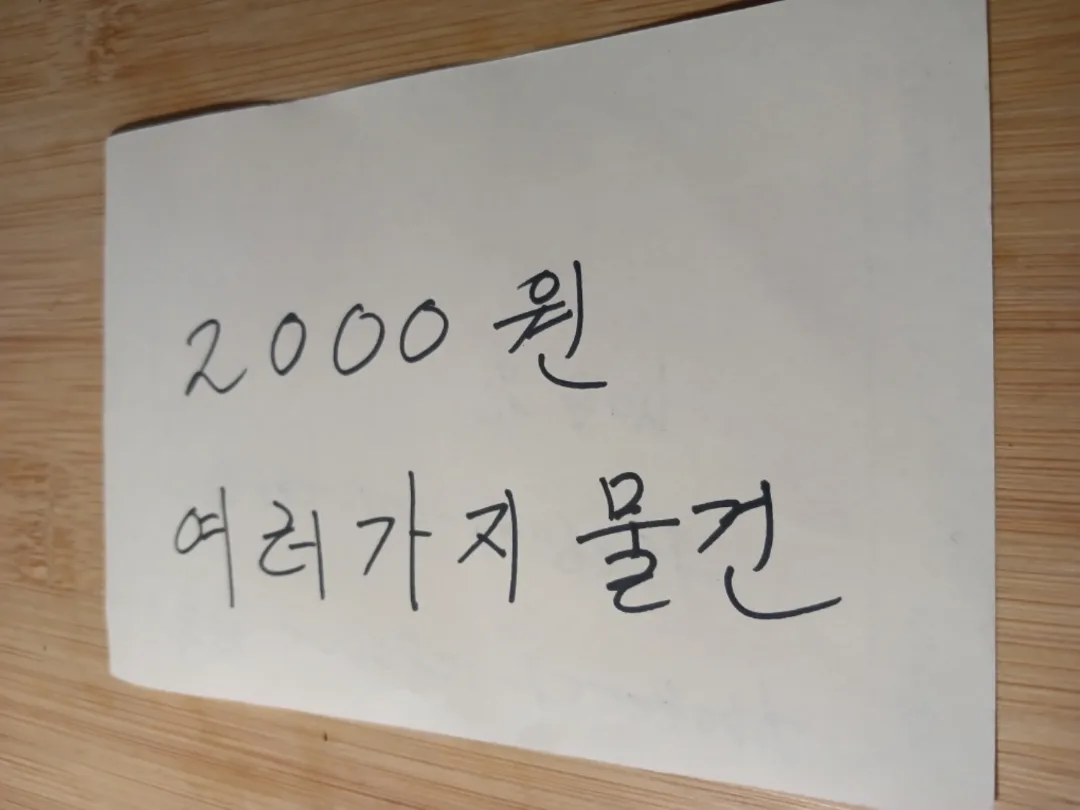 2000 원
여러가지 물건